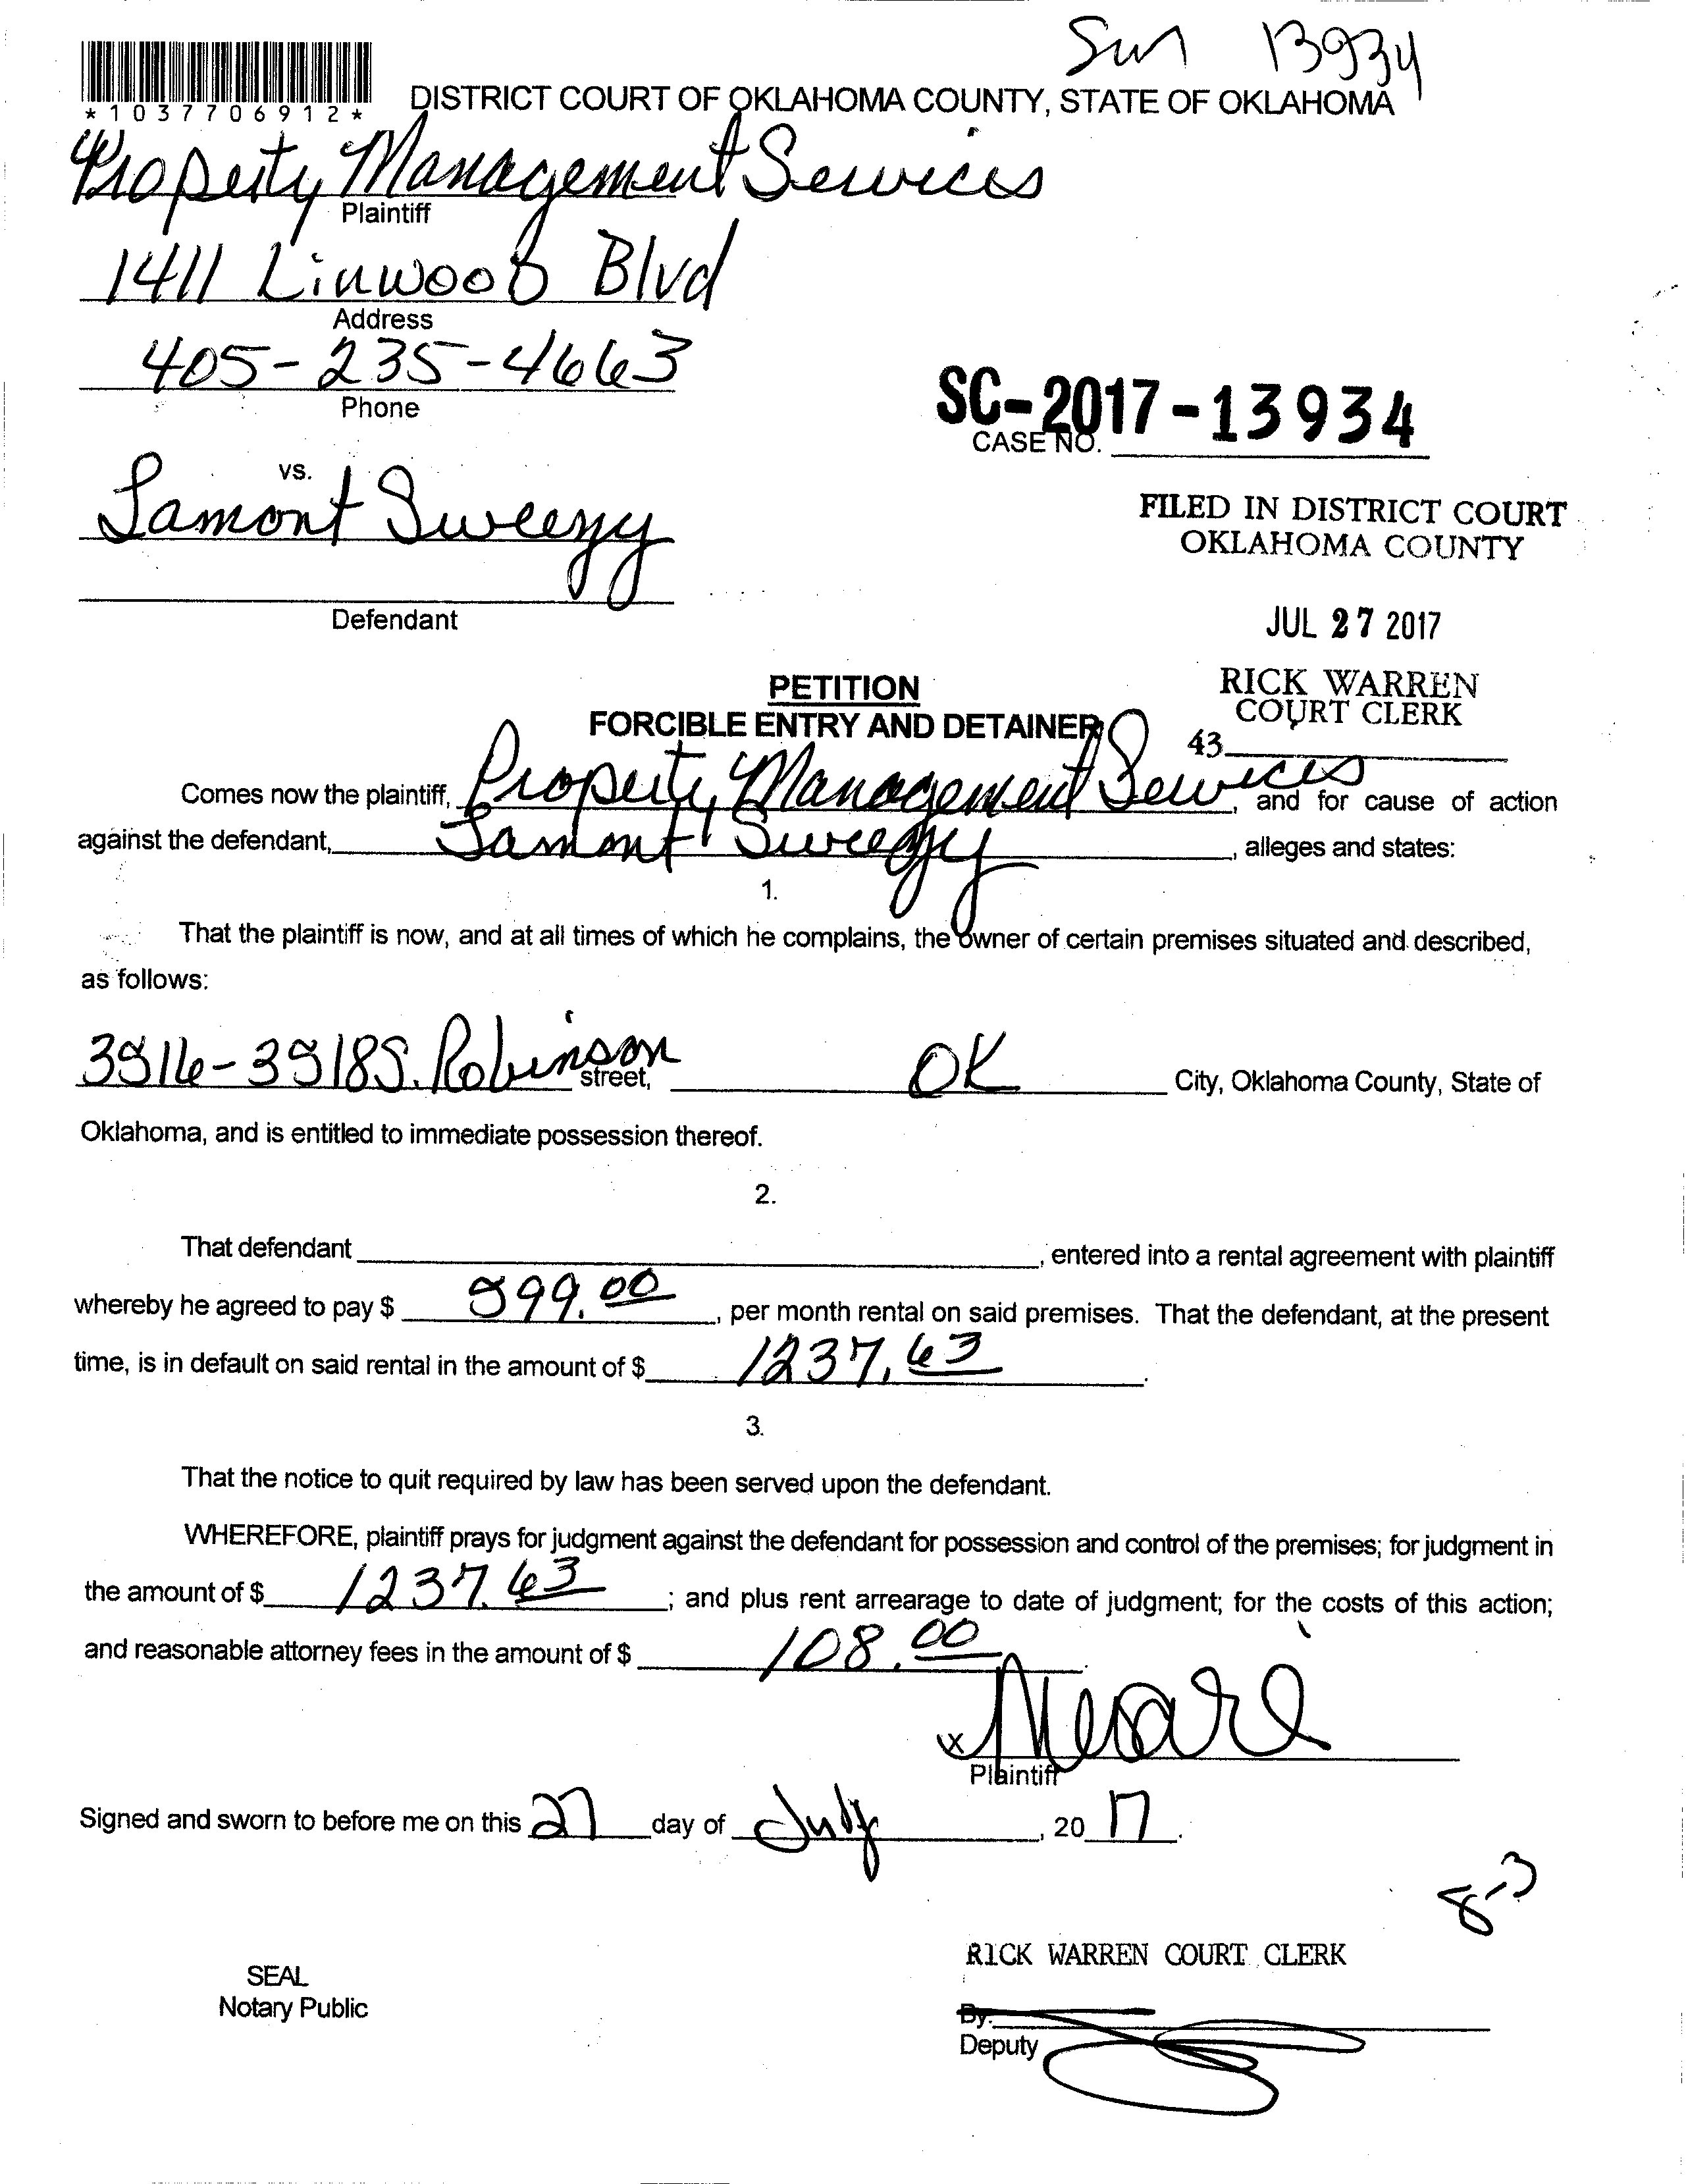 Sm 13934
*1037706912*
DISTRICT COURT OF OKLAHOMA COUNTY, STATE OF OKLAHOMA
Property Management Services
Plaintiff
1411 Linwood Blvd
Address
405-235-4663
Phone
SC-2017-13934
CASE NO.
vs.
Lamont Sweezy
Defendant
FILED IN DISTRICT COURT
OKLAHOMA COUNTY
JUL 27 2017
RICK WARREN
COURT CLERK
43
PETITION
FORCIBLE ENTRY AND DETAINER
Comes now the plaintiff, Property Management Services, and for cause of action
against the defendant, Lamont Sweezy, alleges and states:
1.
That the plaintiff is now, and at all times of which he complains, the owner of certain premises situated and described,
as follows:
3516-3518 S. Robinson street, OK City, Oklahoma County, State of
Oklahoma, and is entitled to immediate possession thereof.
2.
That defendant , entered into a rental agreement with plaintiff
whereby he agreed to pay $ 599.00, per month rental on said premises. That the defendant, at the present
time, is in default on said rental in the amount of $ 1237.63.
3.
That the notice to quit required by law has been served upon the defendant.
WHEREFORE, plaintiff prays for judgment against the defendant for possession and control of the premises; for judgment in
the amount of $ 1237.63; and plus rent arrearage to date of judgment; for the costs of this action;
and reasonable attorney fees in the amount of $ 108.00.
x
Plaintiff
Signed and sworn to before me on this 27 day of July, 2017.
8-3
RICK WARREN COURT CLERK
SEAL
Notary Public
By:
Deputy